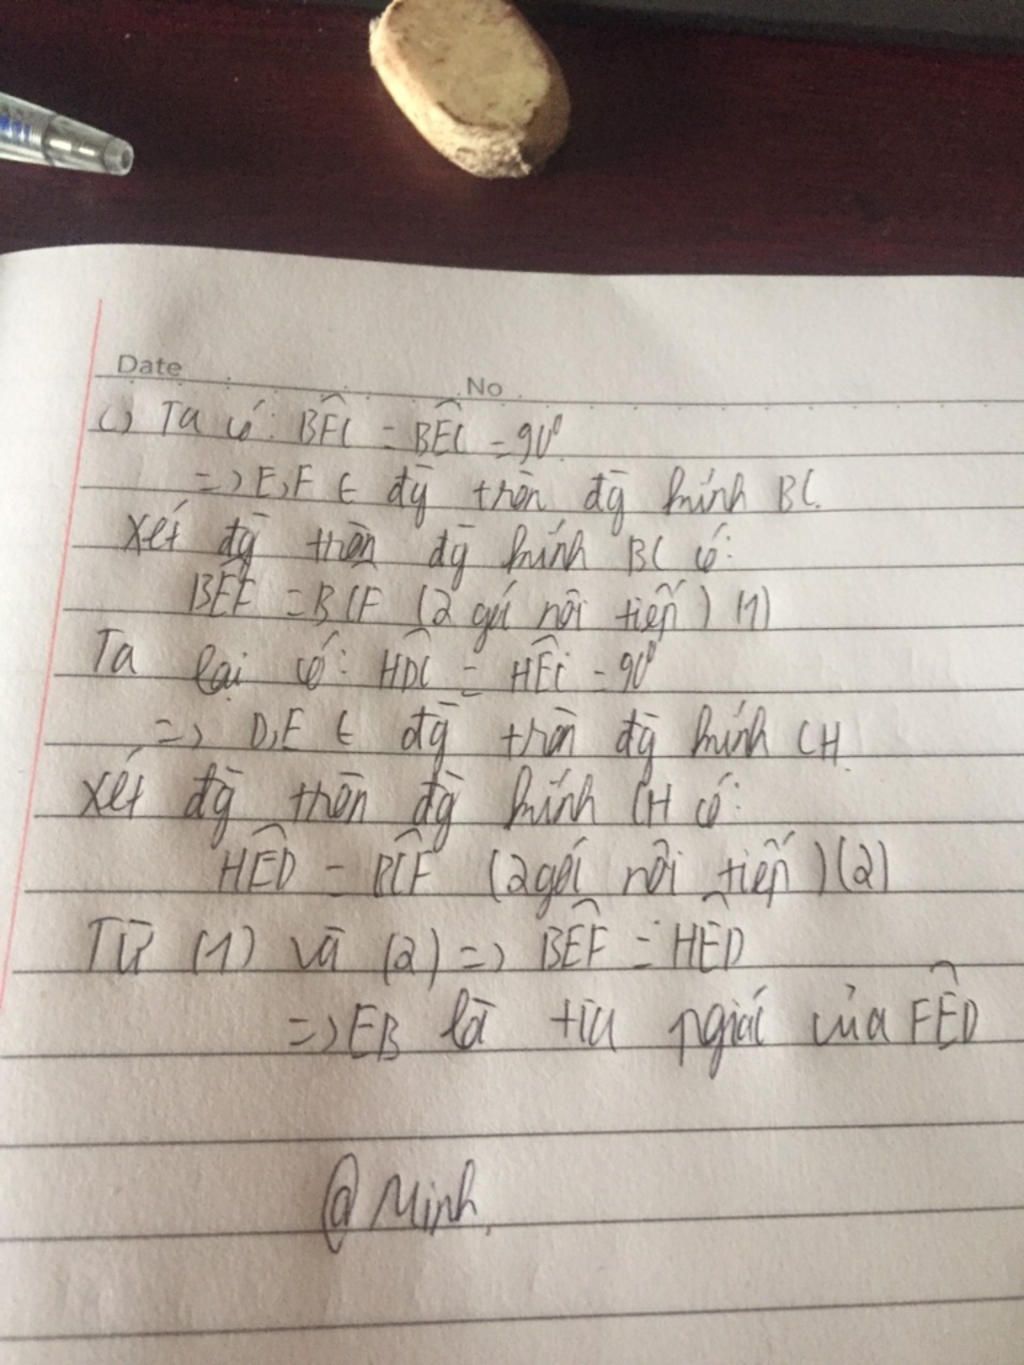 Date No
c) Ta có: BFC = BEC = 90⁰
=> E,F ∈ đg̀ tròn đg̀ kính BC.
Xét đg̀ tròn đg̀ kính BC có:
BEF = BCF (2 góc nội tiếp) (1)
Ta lại có: HDC = HEC = 90⁰
=> D,E ∈ đg̀ tròn đg̀ kính CH
Xét đg̀ tròn đg̀ kính CH có:
HED = BCF (2 góc nội tiếp) (2)
Từ (1) và (2) => BEF = HED
=> EB là tia pgiác của FED
@Minh.